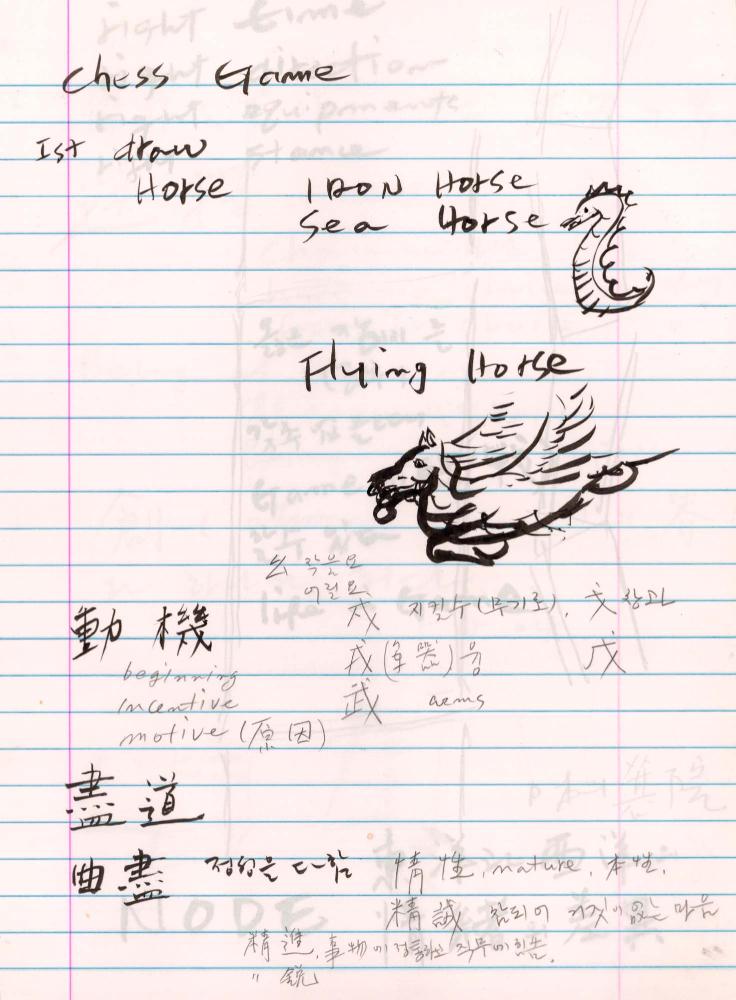 Chess Game
1st draw
Horse IRON Horse
Sea Horse
Flying Horse
幺 작을요
어릴요
動 機 戍 지킬수(무기로), 戈 창과
beginning 戎(軍器)융 戊
incentive 武 arms
motive (原因)
盡 道
曲 盡 정성을 다함 情 性, nature, 本性.
精 誠 참되어 거짓이 없는 마음
精 進, 事物에 정통하고 직무에 힘씀.
〃 銳